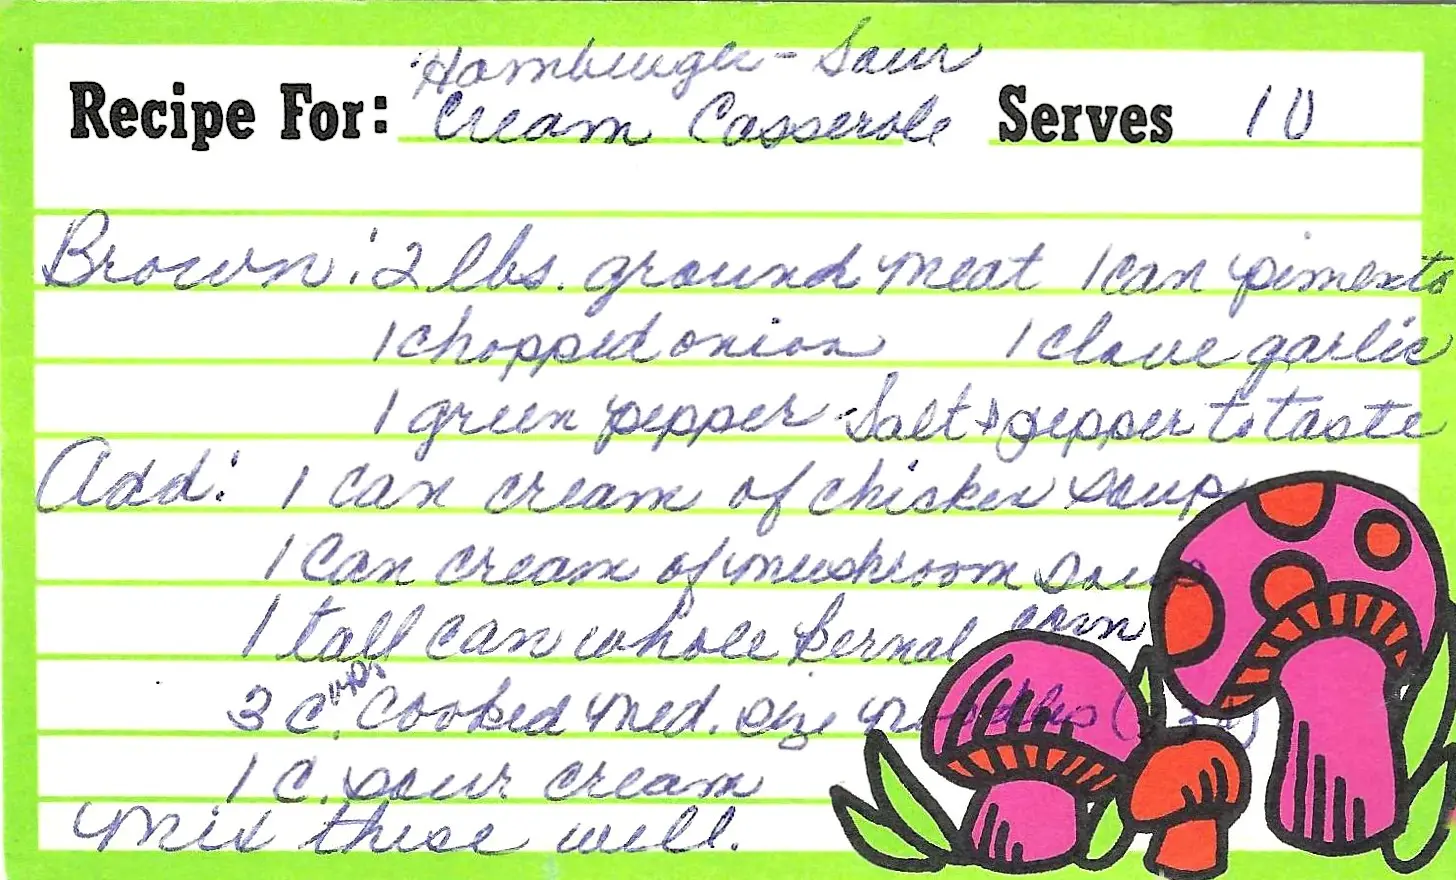 Hamburger - Sour
Recipe For: Cream Casserole Serves 10
Brown: 2 lbs. ground meat 1 can pimento
1 chopped onion 1 clove garlic
1 green pepper - Salt & pepper to taste
Add: 1 can cream of chicken soup
1 can cream of mushroom soup
1 tall can whole kernal corn
3 C. cooked med. size noodles
1 C. sour cream
Mix these well.